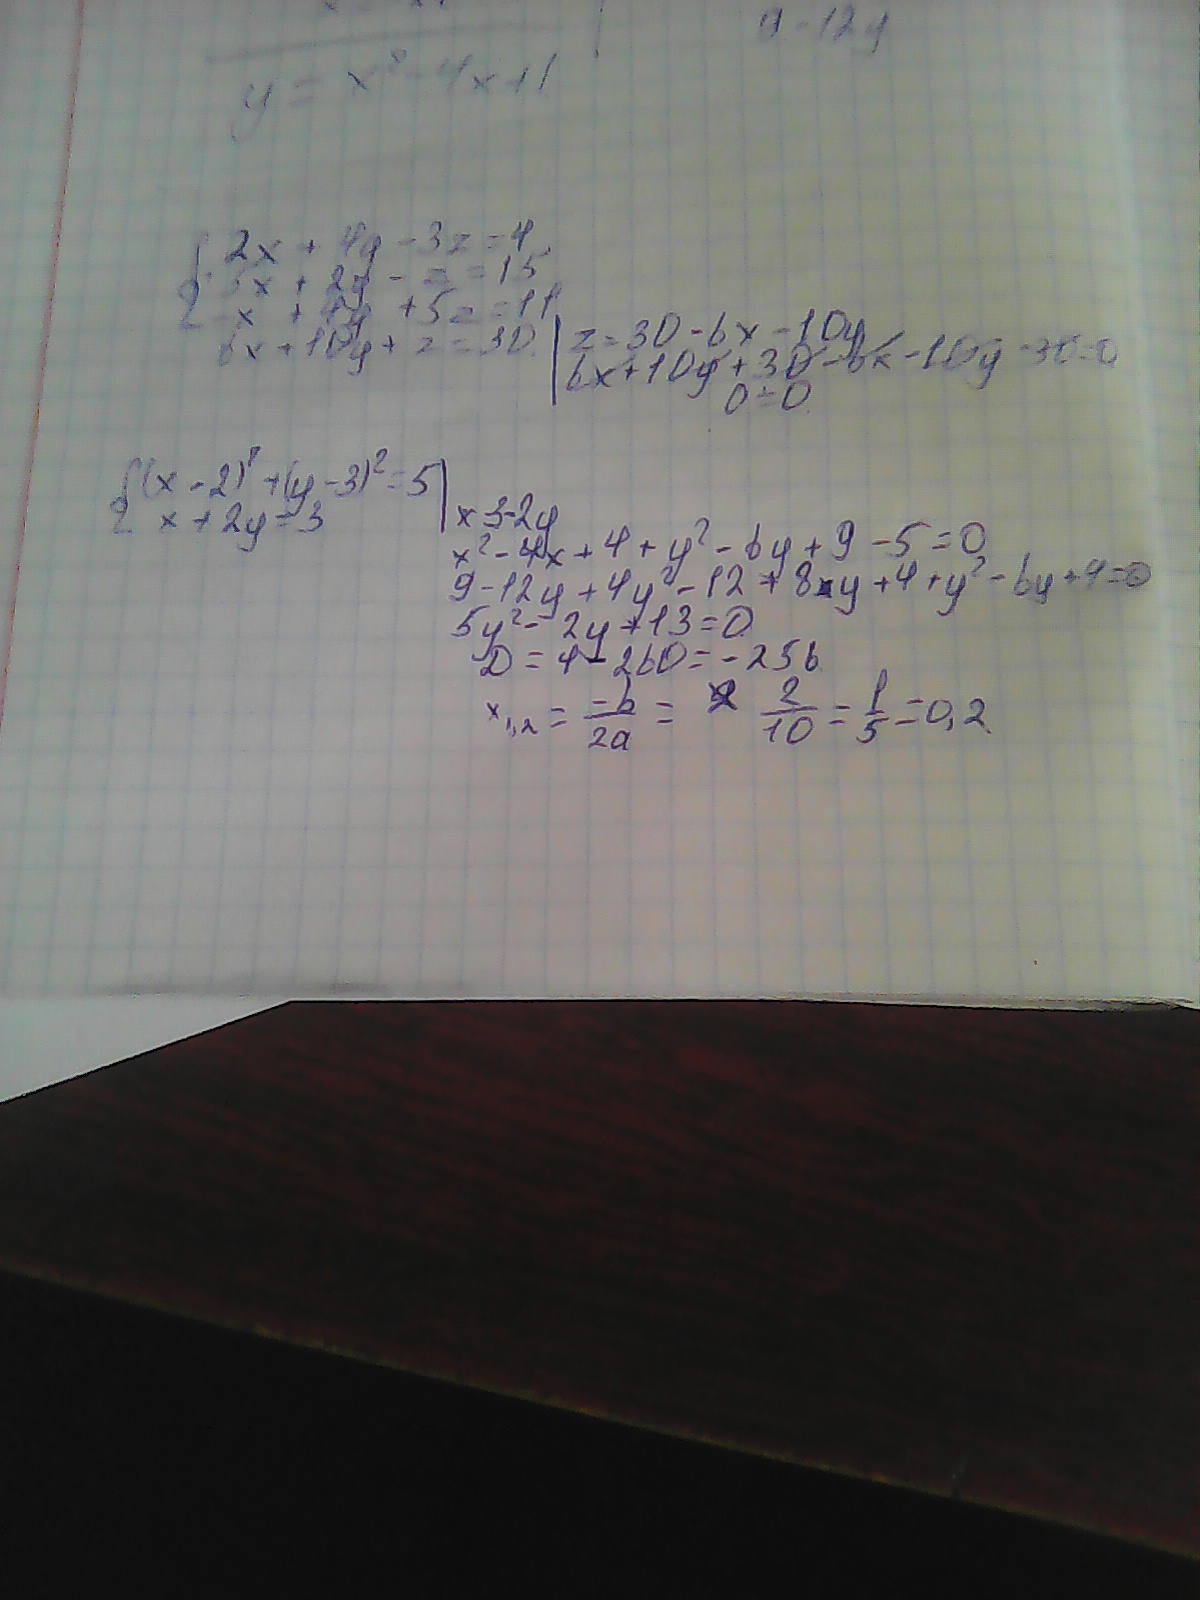 9-12y
y = x²-4x+1
2x + 4y - 3z = 4
3x + 2y - z = 15
x + 4y + 5z = 11
6x + 10y + z = 30 | z = 30-6x-10y
6x+10y+30-6x-10y-30=0
0=0
(x-2)²+(y-3)²=5
x + 2y = 3 | x=3-2y
x²-4x+4+y²-6y+9-5=0
9-12y+4y²-12+8y+4+y²-6y+4=0
5y²-2y+13=0
D=4-260=-256
x₁,₂ = -b/2a = 2/10 = 1/5 = 0,2